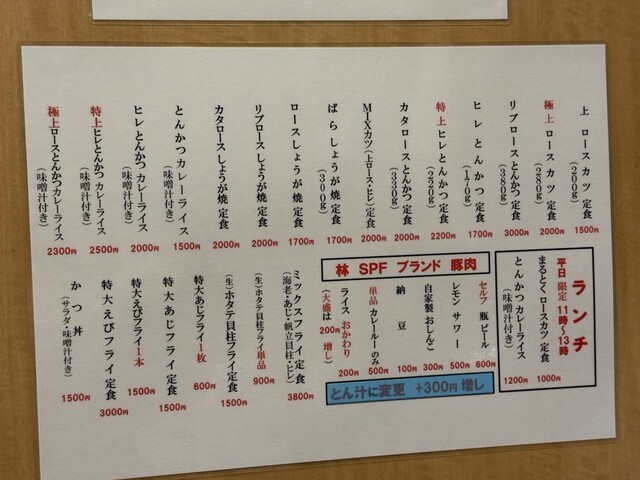 上 ロースカツ 定食
(200g)
1500円
極上 ロースカツ 定食
(280g)
2000円
リブロースとんかつ定食
(380g)
3000円
ヒレとんかつ定食
(170g)
1700円
特上 ヒレとんかつ定食
(2520g)
2200円
カタロースとんかつ定食
(330g)
2000円
MIXカツ(上ロース・ヒレ)定食
2000円
ばらしょうが焼定食
(300g)
1700円
ロースしょうが焼定食
1700円
リブロースしょうが焼定食
2000円
カタロースしょうが焼定食
2000円
とんかつカレーライス
(味噌汁付き)
1500円
ヒレとんかつカレーライス
(味噌汁付き)
2000円
特上ヒレとんかつカレーライス
(味噌汁付き)
2500円
極上ロースとんかつカレーライス
(味噌汁付き)
2300円
ランチ
平日限定 11時~13時
まるとくロースカツ定食
1000円
とんかつカレーライス
(味噌汁付き)
1200円
林 SPF ブランド 豚肉
セルフ 瓶ビール
600円
レモンサワー
500円
自家製おしんこ
300円
納豆
100円
単品 カレールーのみ
500円
ライス おかわり
200円
(大盛は200円増し)
とん汁に変更 +300円 増し
ミックスフライ定食
(海老・あじ・帆立貝柱・ヒレ)
3800円
(生)ホタテ貝柱フライ単品
900円
(生)ホタテ貝柱フライ定食
1500円
特大あじフライ1枚
600円
特大あじフライ定食
1500円
特大えびフライ1本
1500円
特大えびフライ定食
3000円
かつ丼
(サラダ・味噌汁付き)
1500円